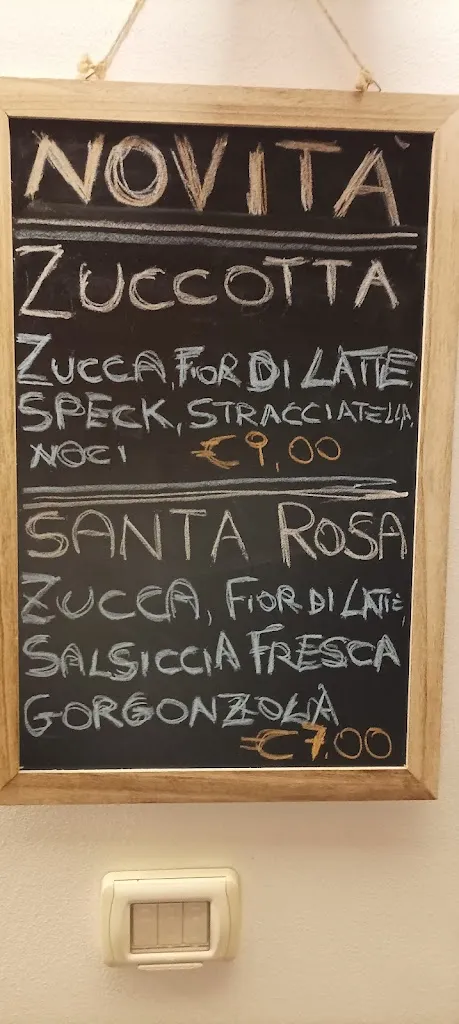 NOVITA'
ZUCCOTTA
ZUCCA, FIOR DI LATTE,
SPECK, STRACCIATELLA,
NOCI €9,00
SANTA ROSA
ZUCCA, FIOR DI LATTE,
SALSICCIA FRESCA
GORGONZOLA
€7.00